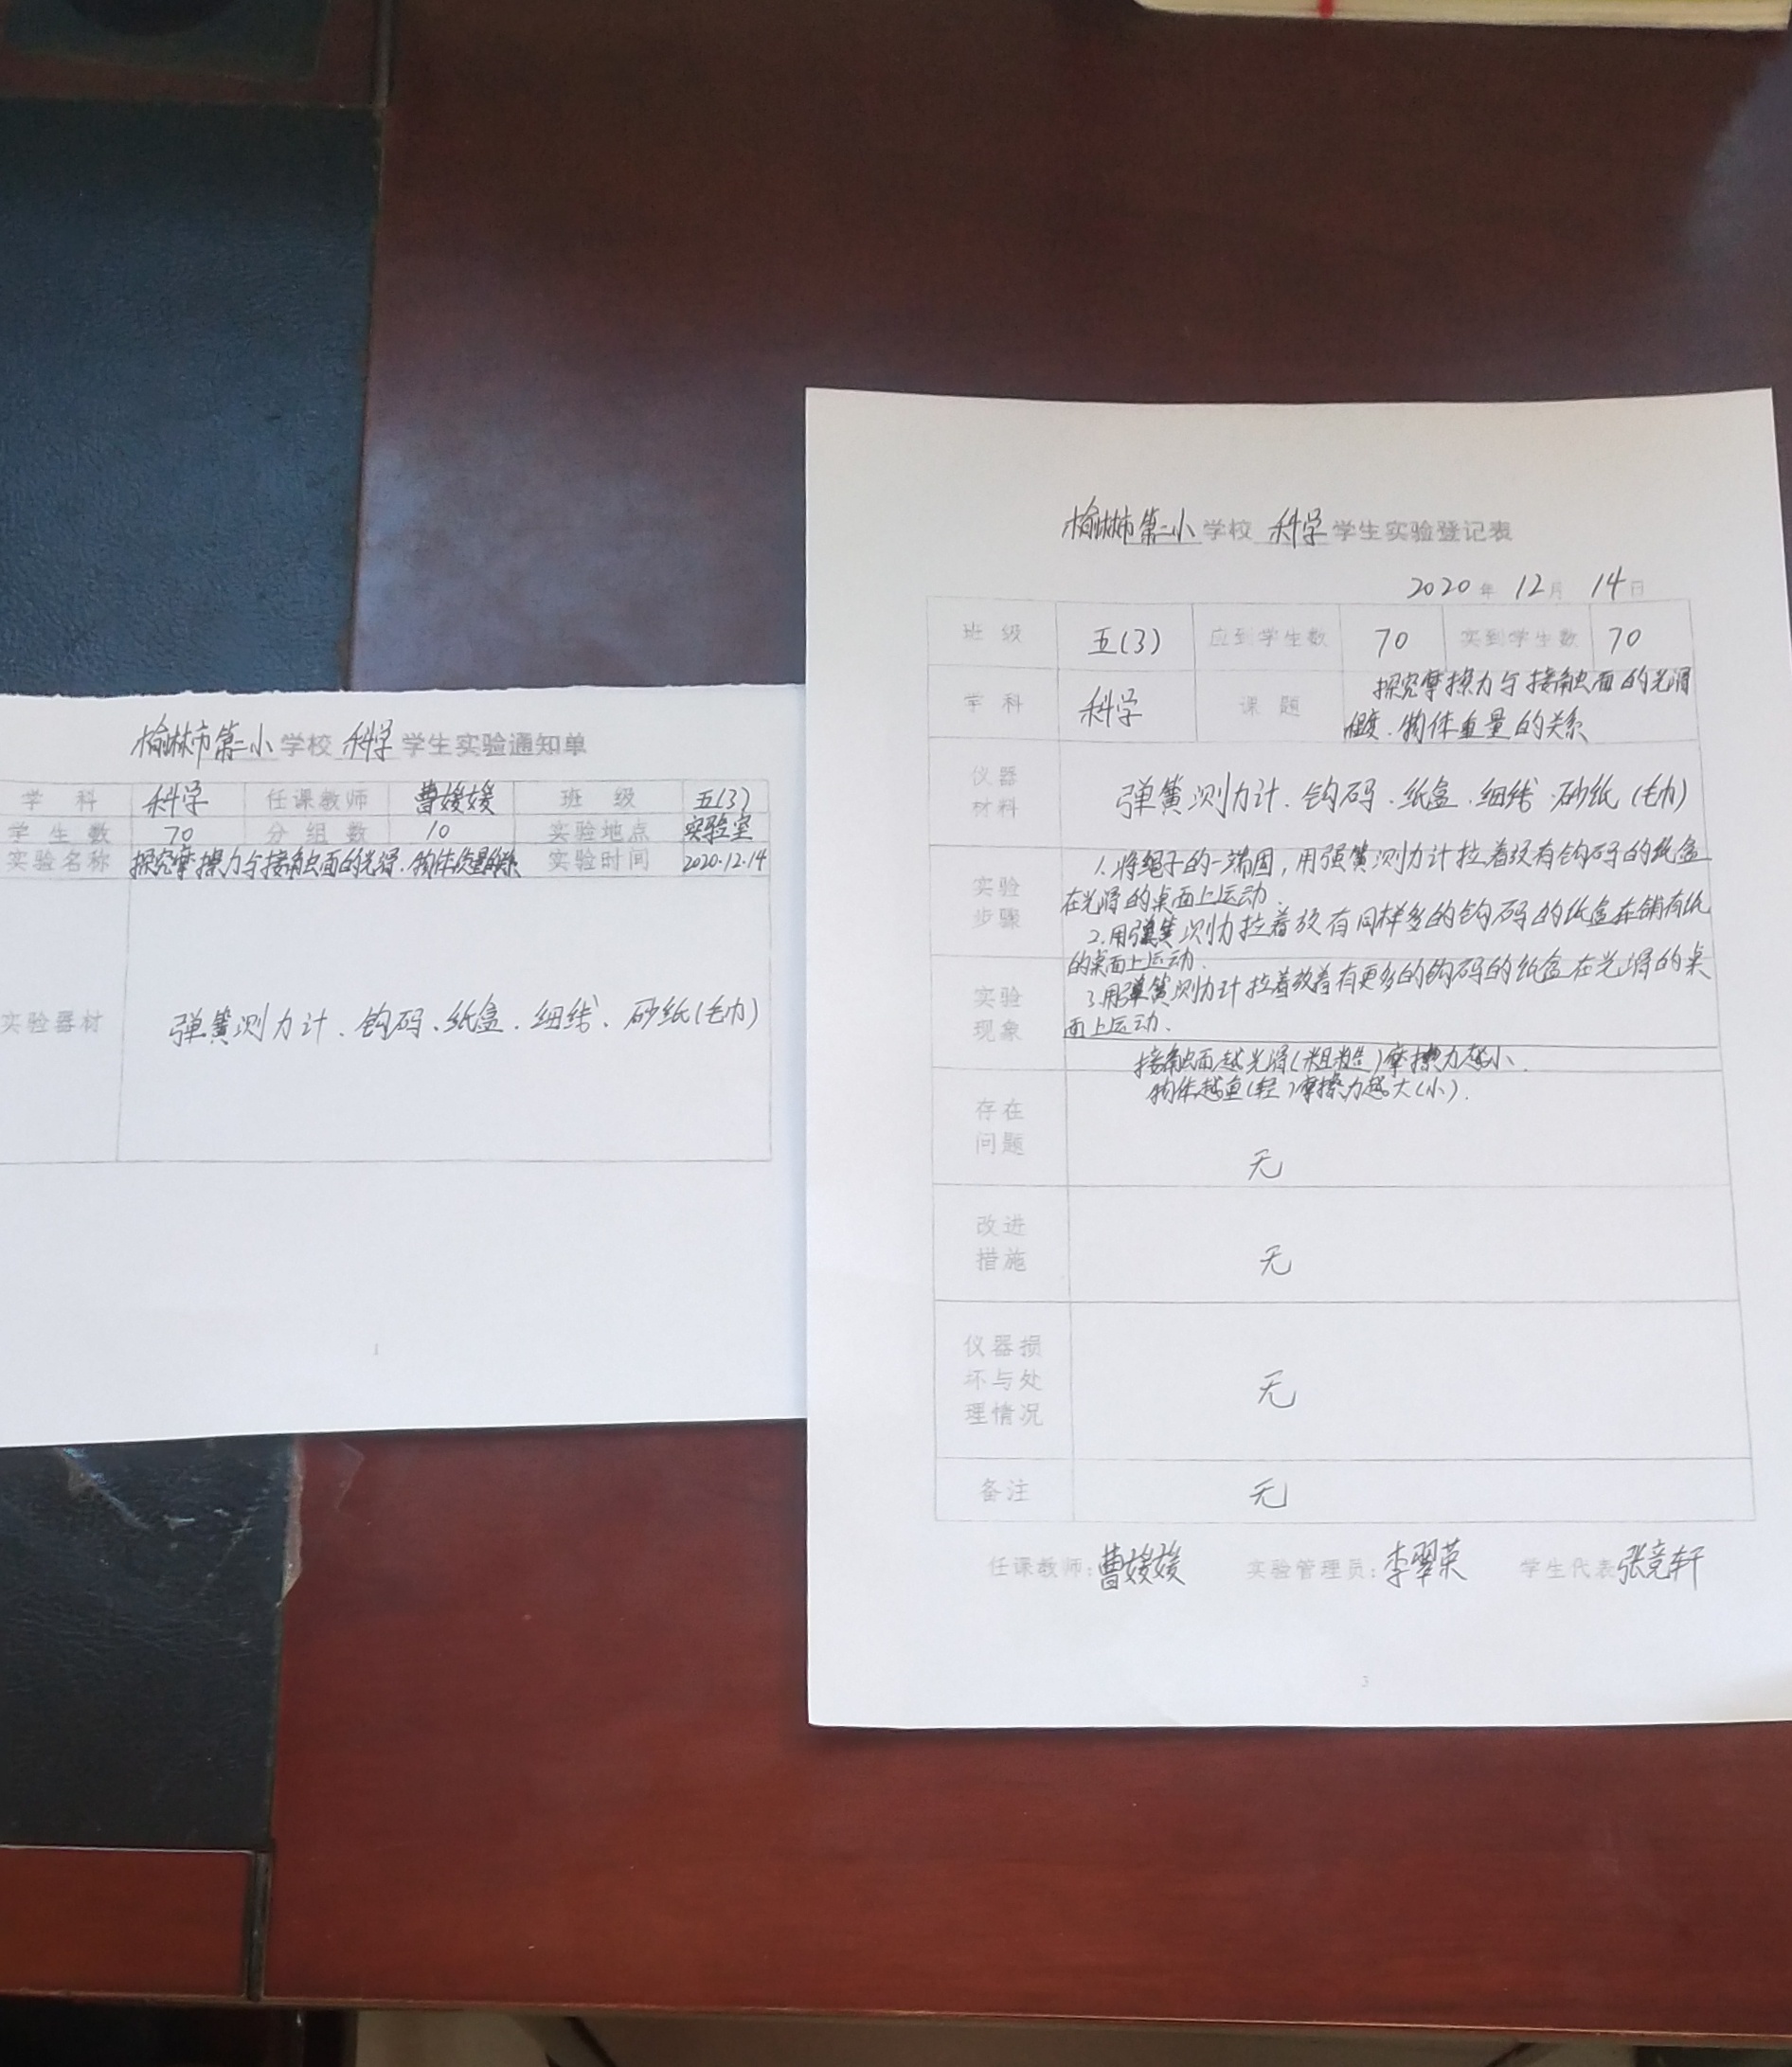 榆林市第二小学校 科学 学生实验通知单
学 科 科学 任课教师 曹媛媛 班 级 五(3)
学生数 70 分组数 10 实验地点 实验室
实验名称 探究摩擦力与接触面的光滑、物体质量的关系 实验时间 2020.12.14
实验器材 弹簧测力计、钩码、纸盒、细线、砂纸(毛巾)
1
榆林市第二小学校 科学 学生实验登记表
2020年 12月 14日
班 级 五(3) 应到学生数 70 实到学生数 70
学 科 科学 课 题 探究摩擦力与接触面的光滑
程度、物体重量的关系
仪器
材料
弹簧测力计、钩码、纸盒、细线、砂纸(毛巾)
实验
步骤
1.将绳子的一端固,用弹簧测力计拉着没有钩码的纸盒
在光滑的桌面上运动.
2.用弹簧测力拉着放有同样多的钩码的纸盒在铺有纸
的桌面上运动.
3.用弹簧测力计拉着放着有更多的钩码的纸盒在光滑的桌
面上运动.
实验
现象
接触面越光滑(粗糙)摩擦力越小.
物体越重(轻)摩擦力越大(小).
存在
问题
无
改进
措施
无
仪器损
坏与处
理情况
无
备注 无
任课教师:曹媛媛 实验管理员:李翠荣 学生代表 张竞轩
3